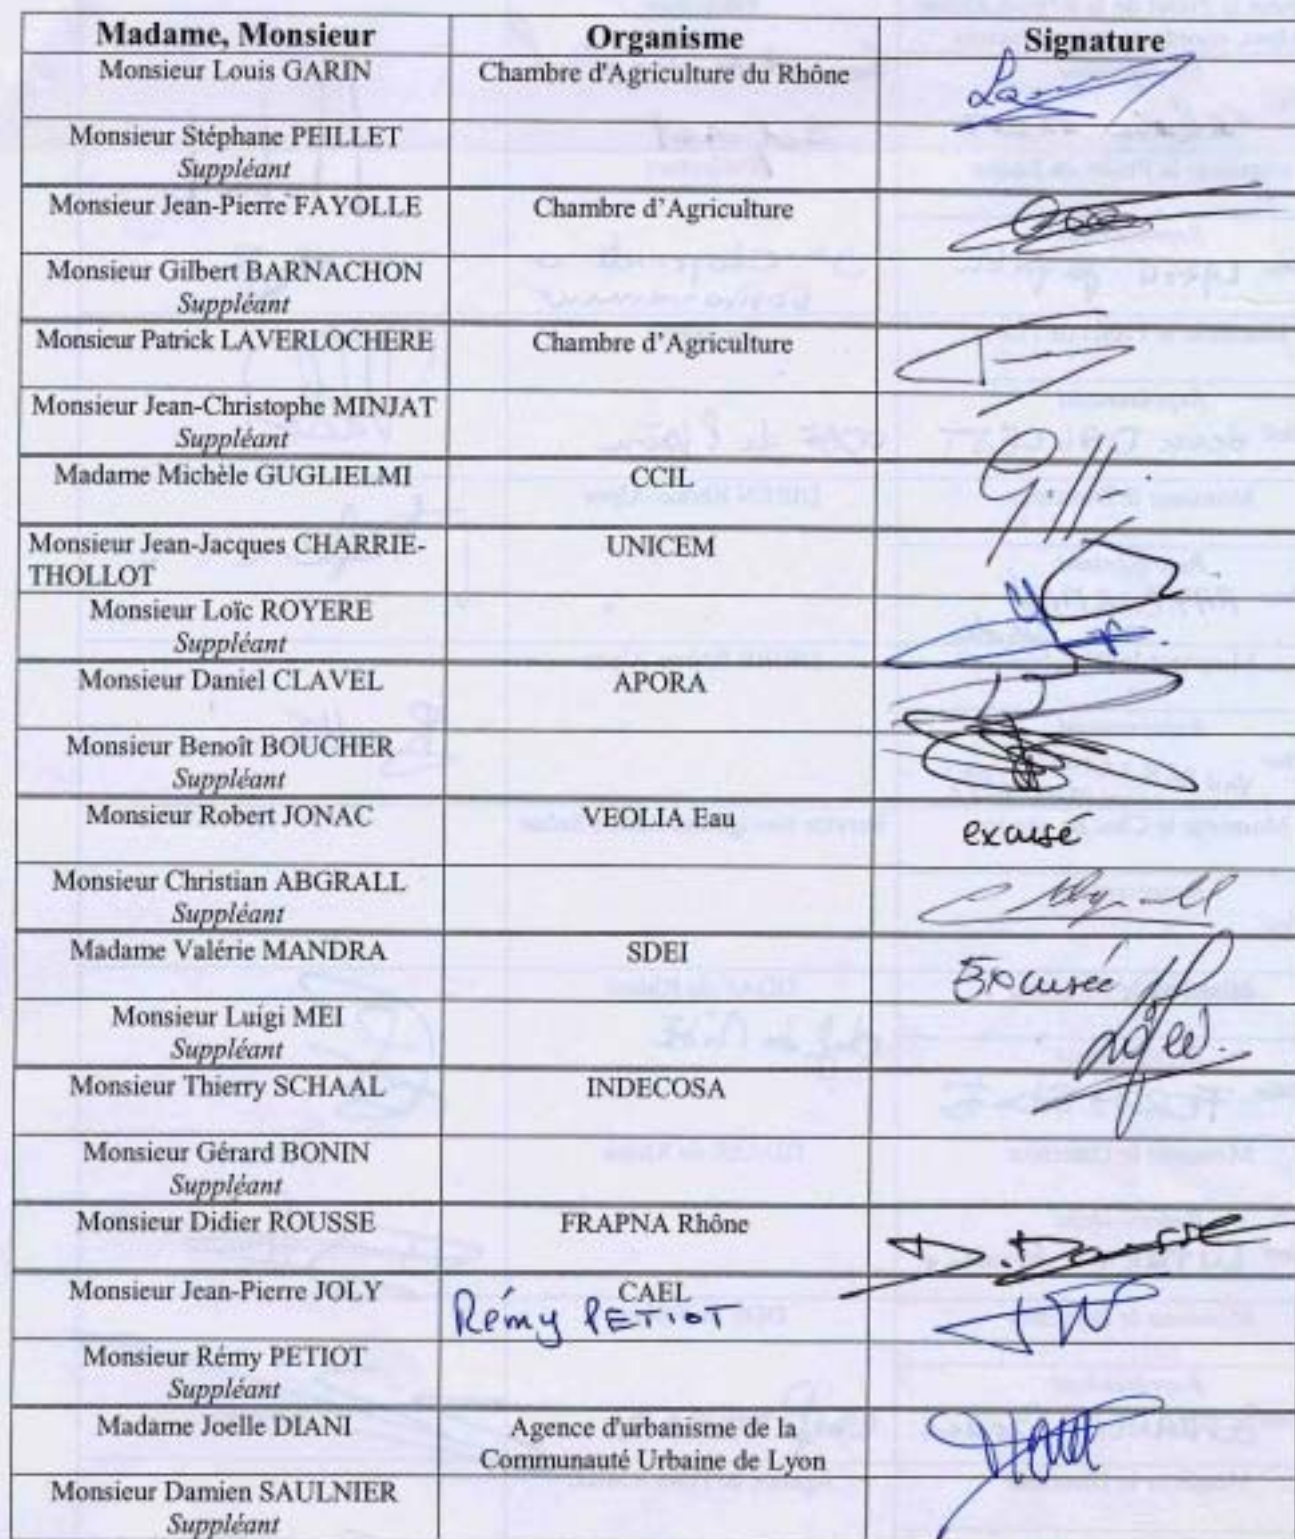 Madame, Monsieur Organisme Signature
Monsieur Louis GARIN Chambre d'Agriculture du Rhône
Monsieur Stéphane PEILLET
Suppléant
Monsieur Jean-Pierre FAYOLLE Chambre d'Agriculture
Monsieur Gilbert BARNACHON
Suppléant
Monsieur Patrick LAVERLOCHERE Chambre d'Agriculture
Monsieur Jean-Christophe MINJAT
Suppléant
Madame Michèle GUGLIELMI CCIL
Monsieur Jean-Jacques CHARRIE- UNICEM
THOLLOT
Monsieur Loïc ROYERE
Suppléant
Monsieur Daniel CLAVEL APORA
Monsieur Benoît BOUCHER
Suppléant
Monsieur Robert JONAC VEOLIA Eau excusé
Monsieur Christian ABGRALL
Suppléant
Madame Valérie MANDRA SDEI Excusée
Monsieur Luigi MEI
Suppléant
Monsieur Thierry SCHAAL INDECOSA
Monsieur Gérard BONIN
Suppléant
Monsieur Didier ROUSSE FRAPNA Rhône
Monsieur Jean-Pierre JOLY CAEL
Rémy PETIOT
Monsieur Rémy PETIOT
Suppléant
Madame Joelle DIANI Agence d'urbanisme de la
Communauté Urbaine de Lyon
Monsieur Damien SAULNIER
Suppléant